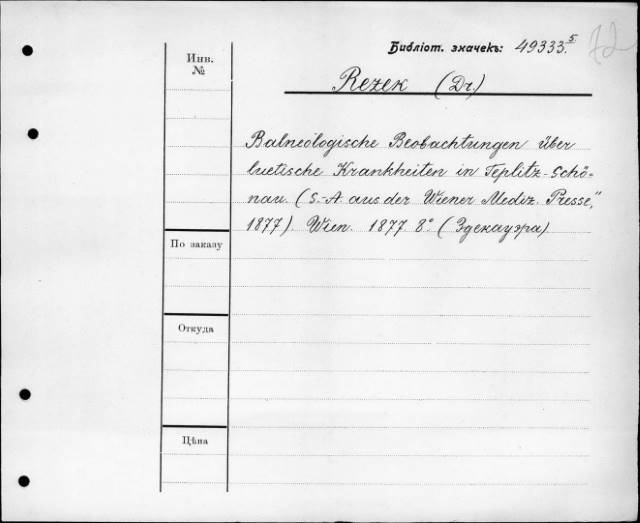 Библіот. значекъ: 49333.5
72
Инв.
№
Rezek (Dr.)
Balneologische Beobachtungen über
luetische Krankheiten in Teplitz-Schö-
nau. (S.-A. aus der Wiener Mediz. Presse,"
1877). Wien. 1877 8° (Здекауэра)
По заказу
Откуда
Цѣна